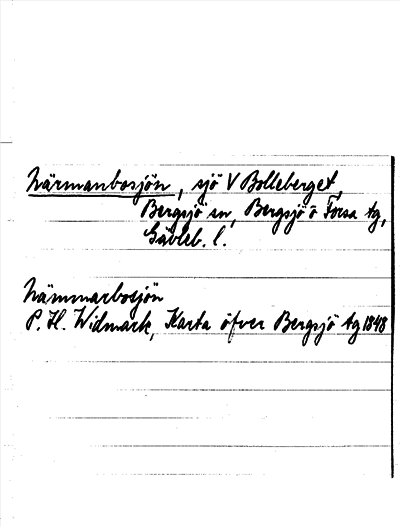 Närmanbosjön, sjö V Bolleberget,
Bergsjö sn, Bergsjö o Forsa tg,
Gävleb. l.
Nämmarbosjön
P. H. Widmark, Karta öfver Bergsjö tg 1848